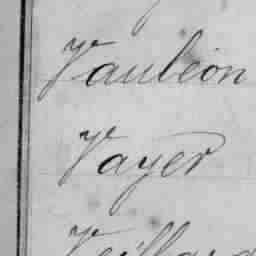 Vauléon
Vayer
Veillard